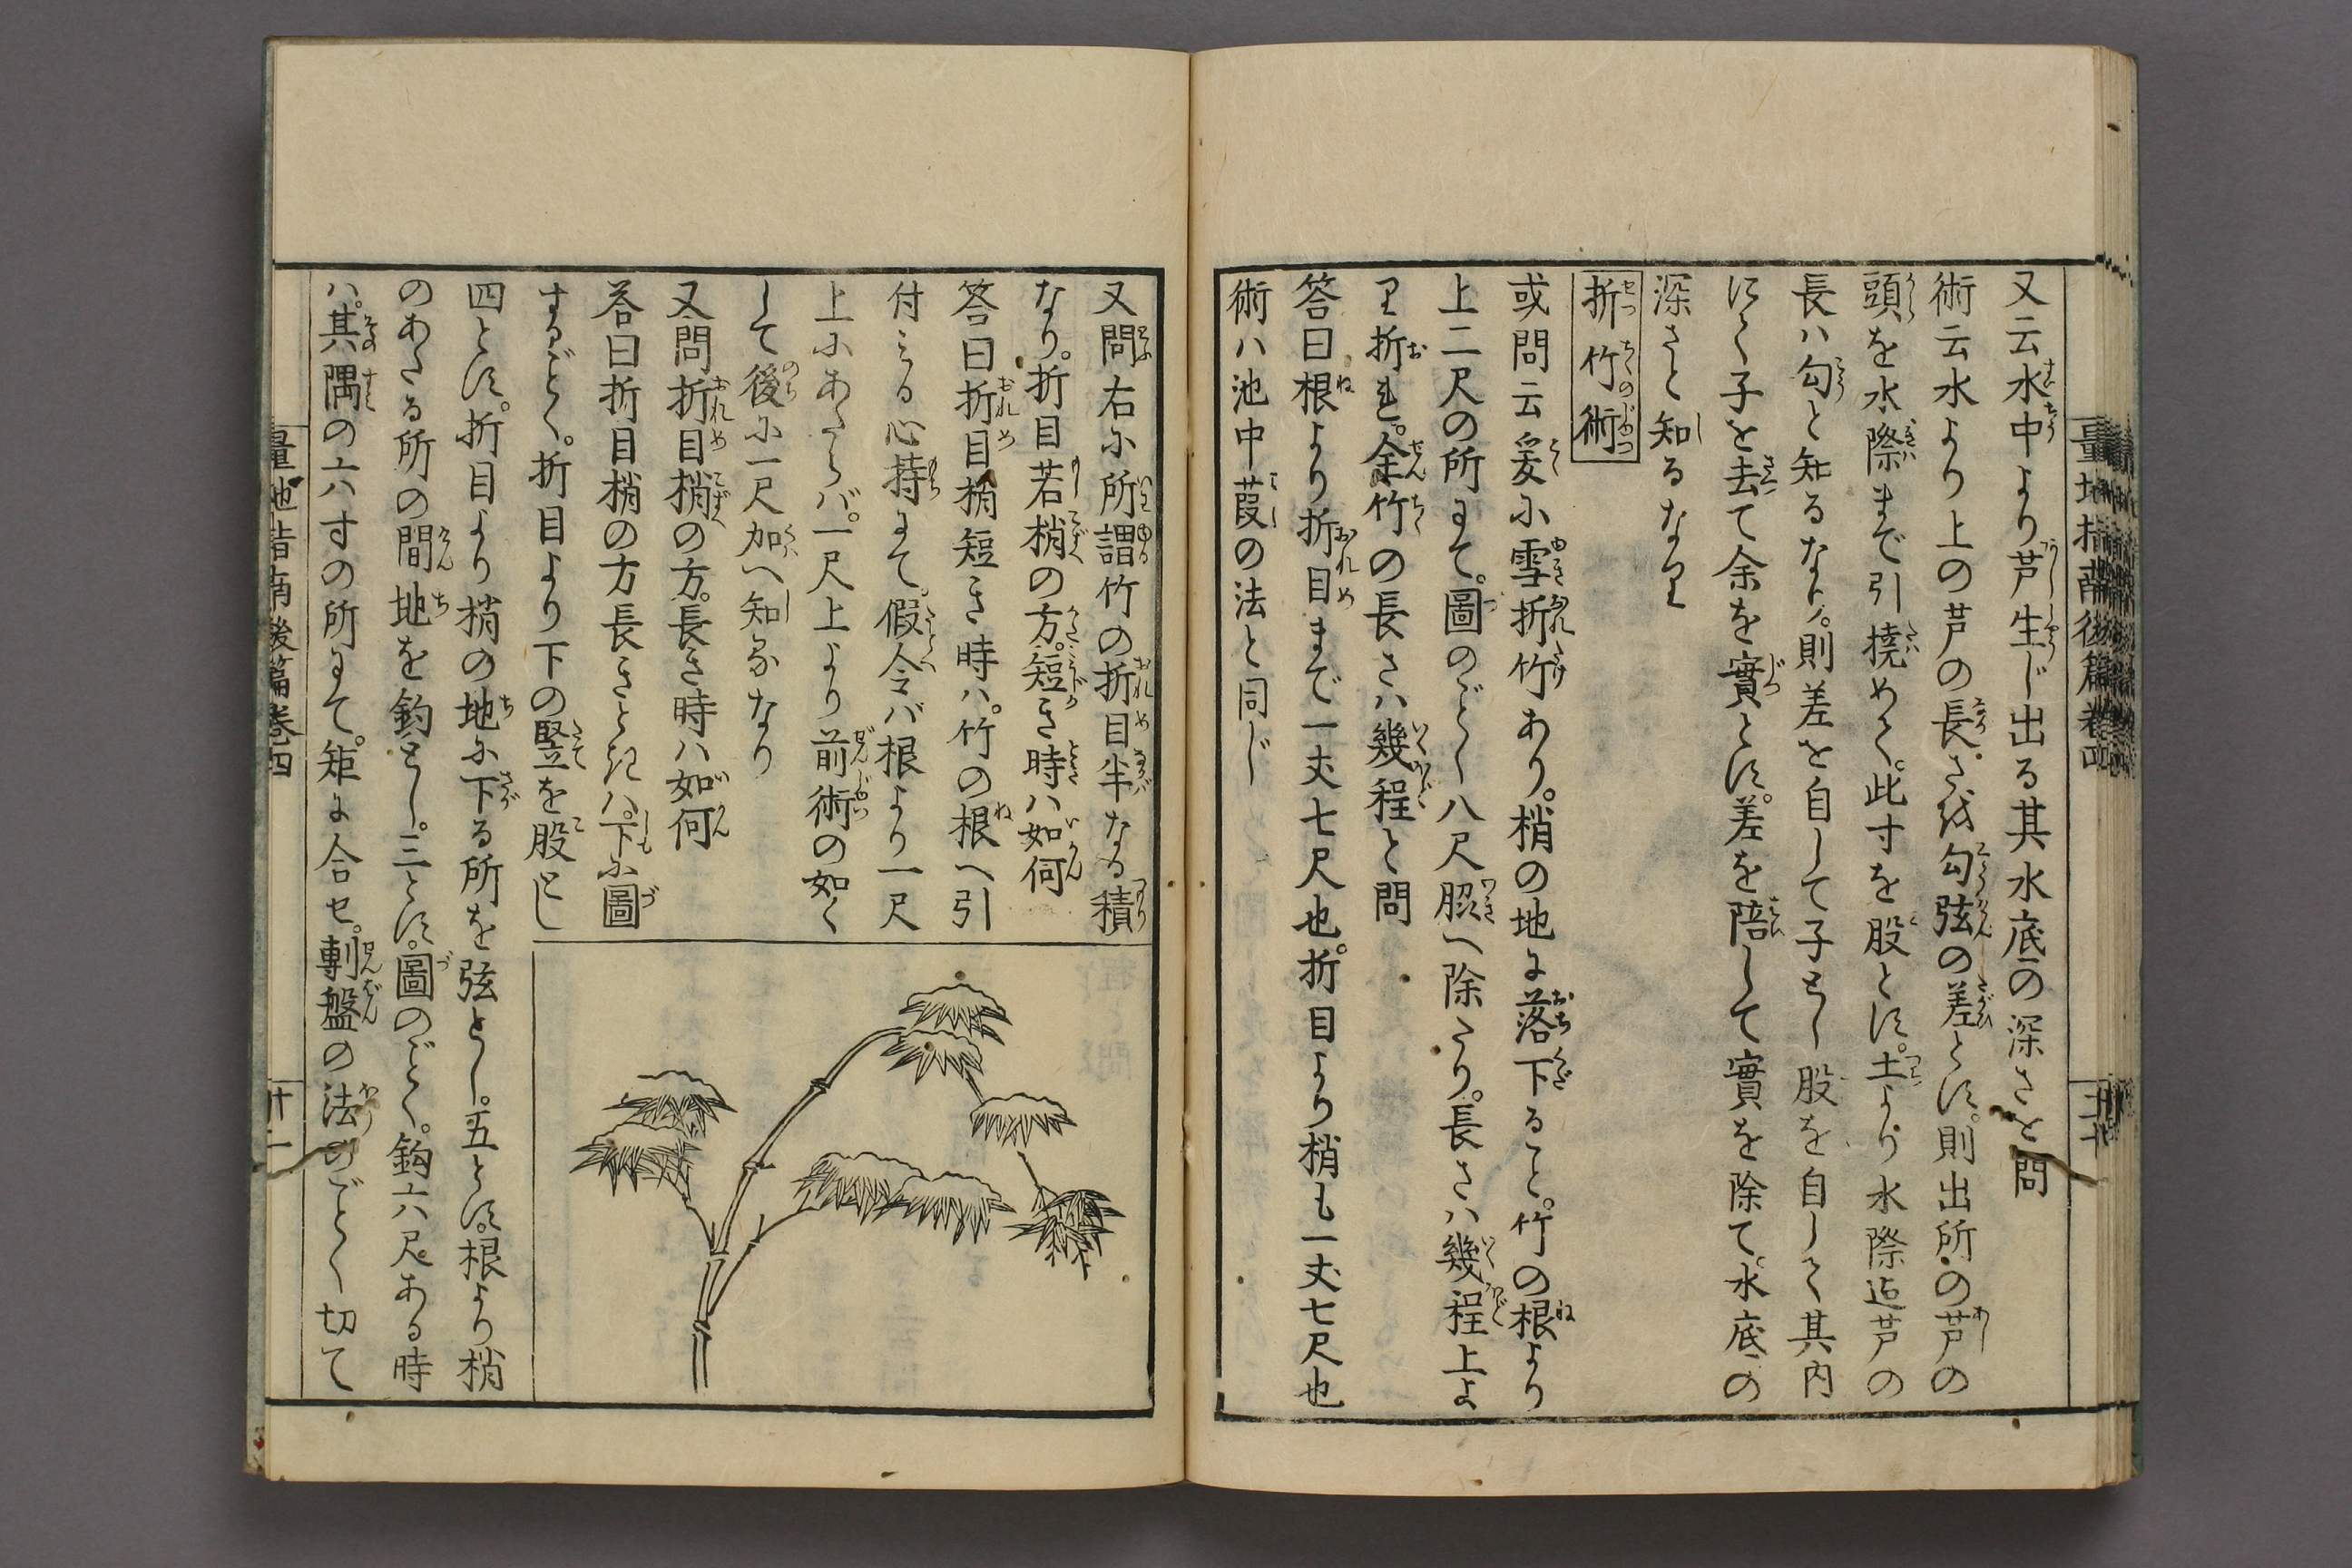 又云水中より芦生じ出る其水底の深さを問
術云水より上の芦の長さを勾弦の差とす。則出所の芦の
頭を水際まで引撓めて。此寸を股とす。土より水際迄芦の
長ハ勾と知るなり。則差を自して子とし股を自して其内
にて子を去て余を實とす。差を陪して實を除て。水底の
深さと知るなり
折竹術
或問云爰に雪折竹あり。梢の地に落下ること。竹の根より
上二尺の所にて。圖のごとく八尺脇へ除たり。長さハ幾程上よ
り折れ。全竹の長さハ幾程と問
答曰根より折目まで一丈七尺也。折目より梢も一丈七尺也
術ハ池中葭の法と同じ
又問右に所謂竹の折目半なる積
なり。折目若梢の方。短き時ハ如何
答曰折目梢短き時ハ。竹の根へ引
付る心持にて。假令バ根より一尺
上にあたらバ。一尺上より前術の如く
して後に一尺加へ知るなり
又問折目梢の方。長き時ハ如何
答曰折目梢の方長きときハ。下に圖
するごとく。折目より下の竪を股とし
四とす。折目より梢の地に下る所を弦とし。五とす。根より梢
のあたる所の間地を鈎とし。三とす。圖のごとく。鈎六尺ある時
ハ。其隅の六寸の所にて。矩に合セ。剸盤の法のごとく切て
量地指南後篇巻四
十一